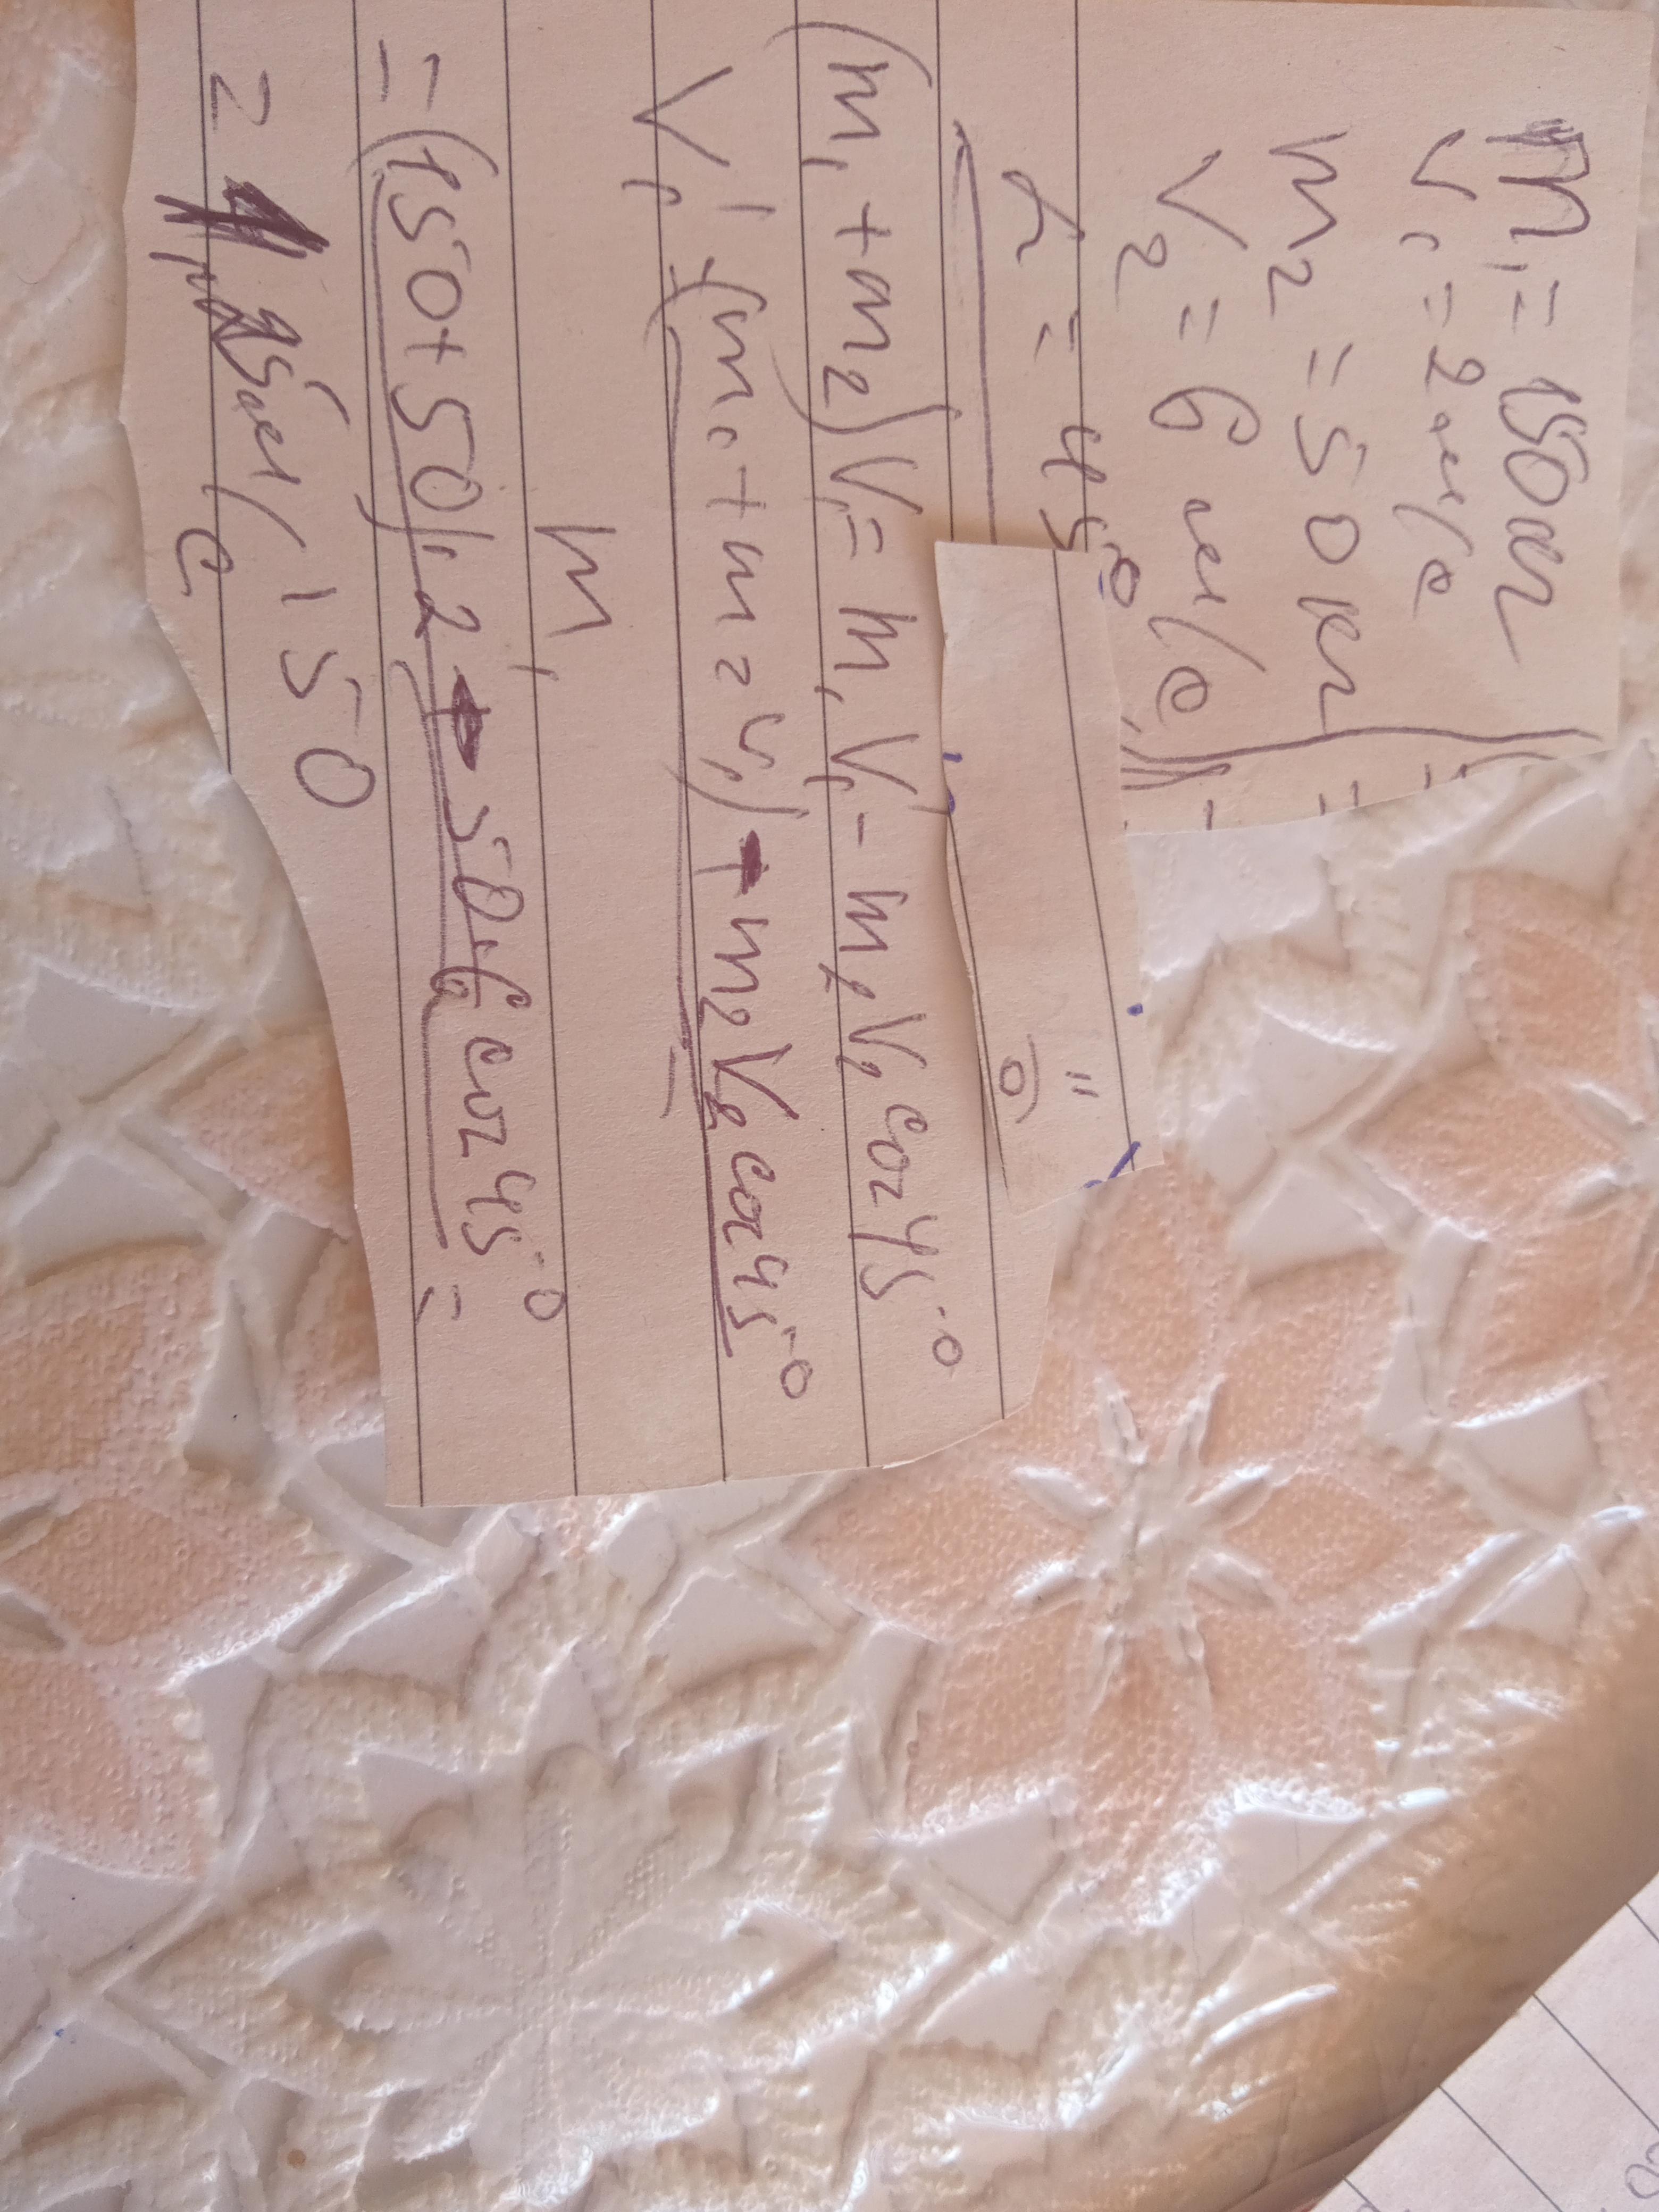 m₁ = 150 кг
v₁ = 2 м/с
m₂ = 50 кг
V₂ = 6 м/с
α = 45°
(m₁ + m₂)V₁ = m₁V₁' - m₂V₂ cos 45°
V₁' = (m₁ + m₂ v₁) + m₂V₂ cos 45°
m₁
= (150 + 50) · 2 + 50 · 6 cos 45° =
150
= 5 м/с